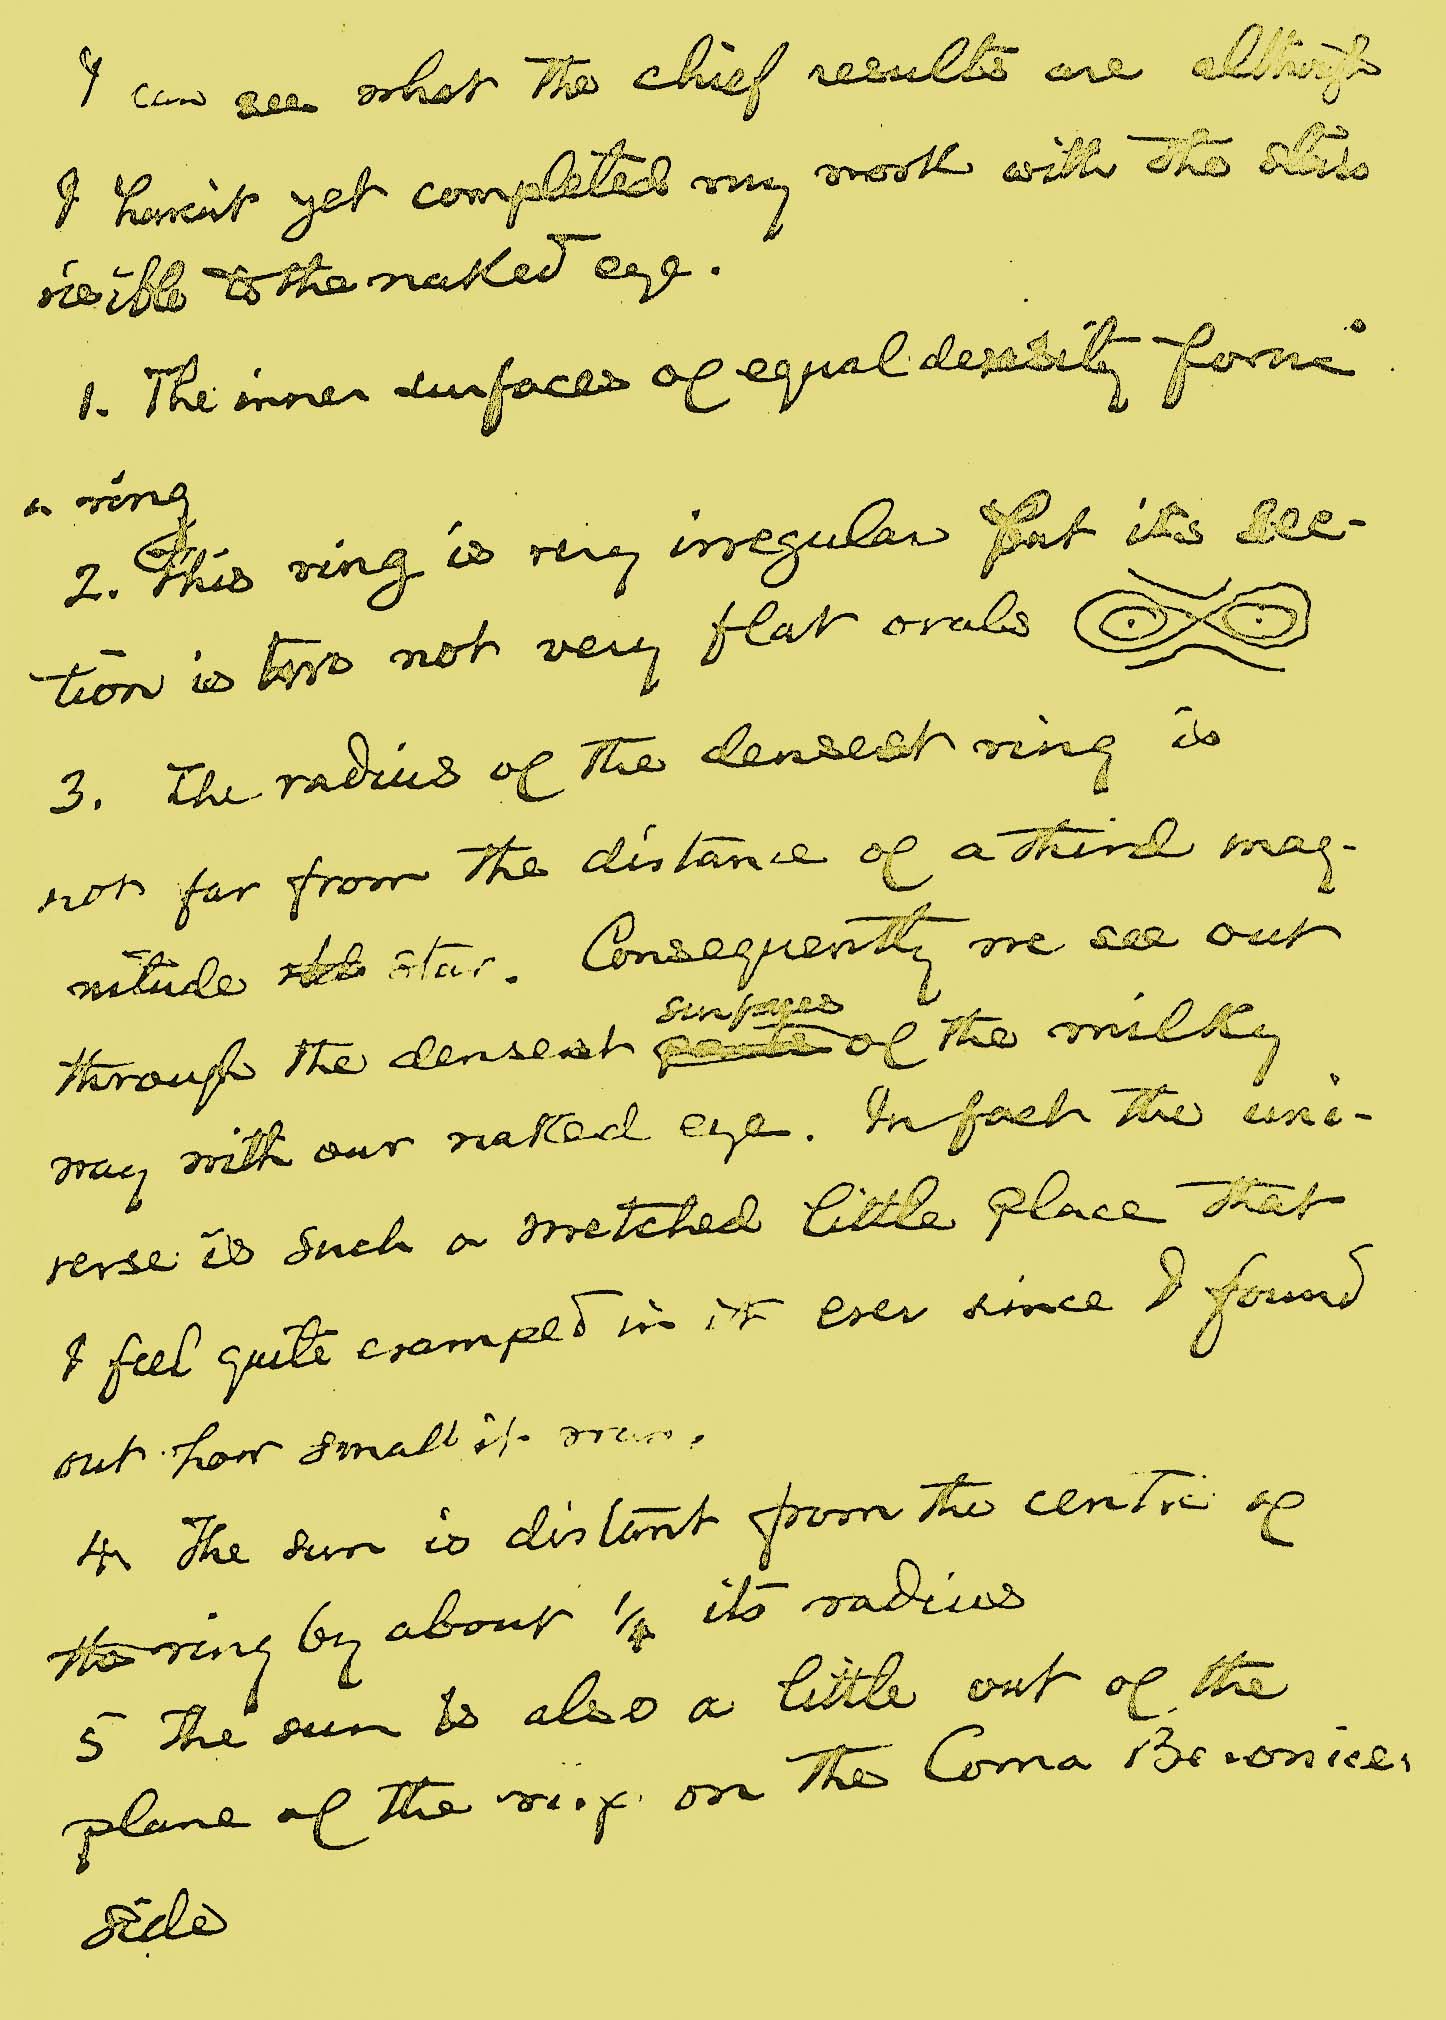 I can see what the chief results are although
I haven't yet completed my work with the stars
visible to the naked eye.
1. The inner surfaces of equal density form
a ring
2. This ring is very irregular but its sec-
tion is two not very flat ovals
3. The radius of the densest ring is
not far from the distance of a third mag-
nitude star. Consequently we see out
surfaces
through the densest of the milky
way with our naked eye. In fact the uni-
verse is such a wretched little place that
I feel quite cramped in it ever since I found
out how small it was.
4. The sun is distant from the centre of
the ring by about 1/4 its radius
5 The sun is also a little out of the
plane of the ring on the Coma Berenices
side